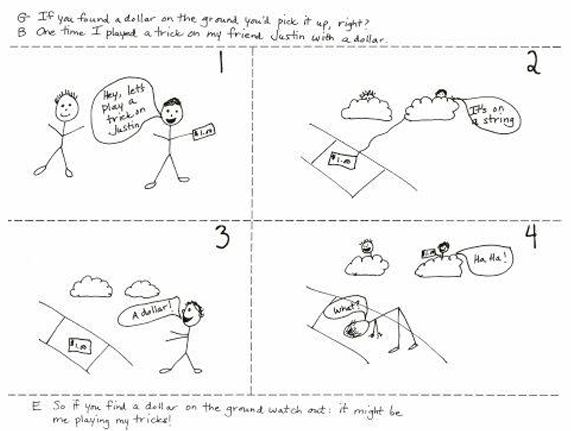 G- If you found a dollar on the ground you'd pick it up, right?
B One time I played a trick on my friend Justin with a dollar.
1
Hey, let's
play a
trick on
Justin
$1.00
2
It's on
a string
$1.00
3
A dollar!
$1.00
4
Ha Ha!
What?
E So if you find a dollar on the ground watch out: it might be
me playing my tricks!